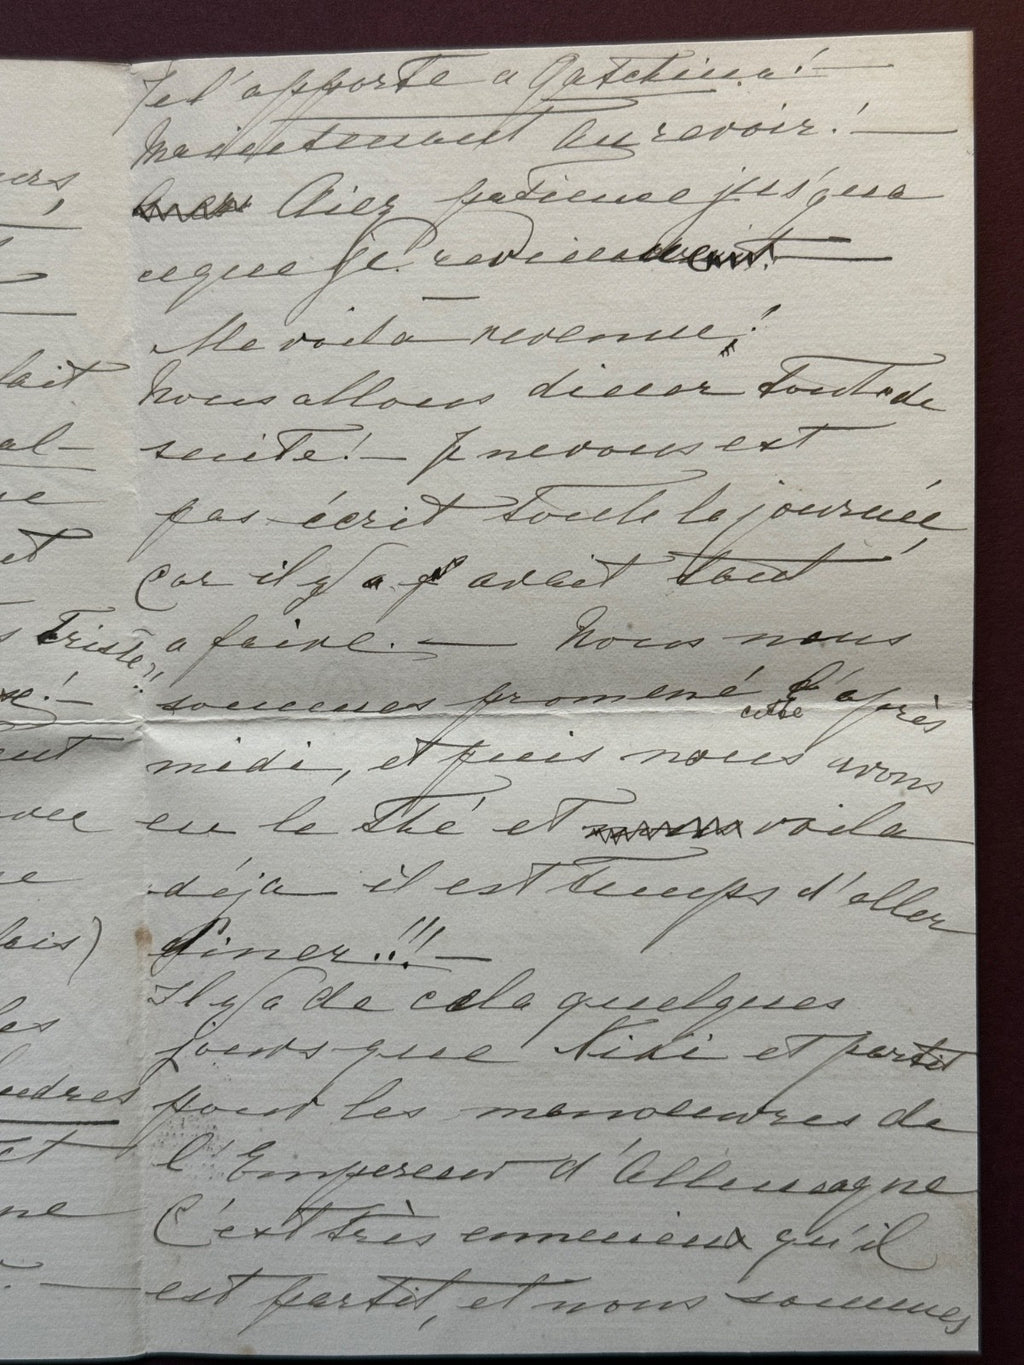 Je l'apporte a Gatchina! —
Maintenant au revoir! —
Aiez patience jusqua
ceque je revienne
Me voila revenue!
Nous allons diner toute de
suite! — Je ne vous est
pas écrit toute la journée,
Car il y a avait tant
a faire. — Nous nous
sommes promené cette l'après
midi, et puis nous avons
eu le thé et voila
déja il est temps d'aller
diner!!! —
Il y a de cela quelques
jours que Niki et partit
pour les manoeuvres de
l'Empereur d'Allemagne
C'est très ennuieux qu'il
est partit, et nous sommes
ers,
lait
al-
et
s triste!!
ais)
les
ondres
et
ne